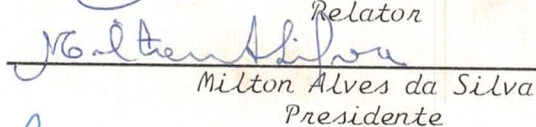 Relator
Milton A Silva
Milton Alves da Silva
Presidente